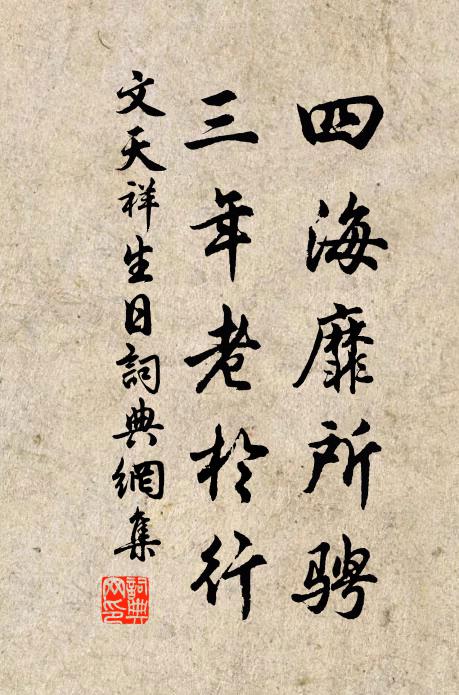 四海靡所騁
三年老於行
文天祥生日詞典網集
詞典網印